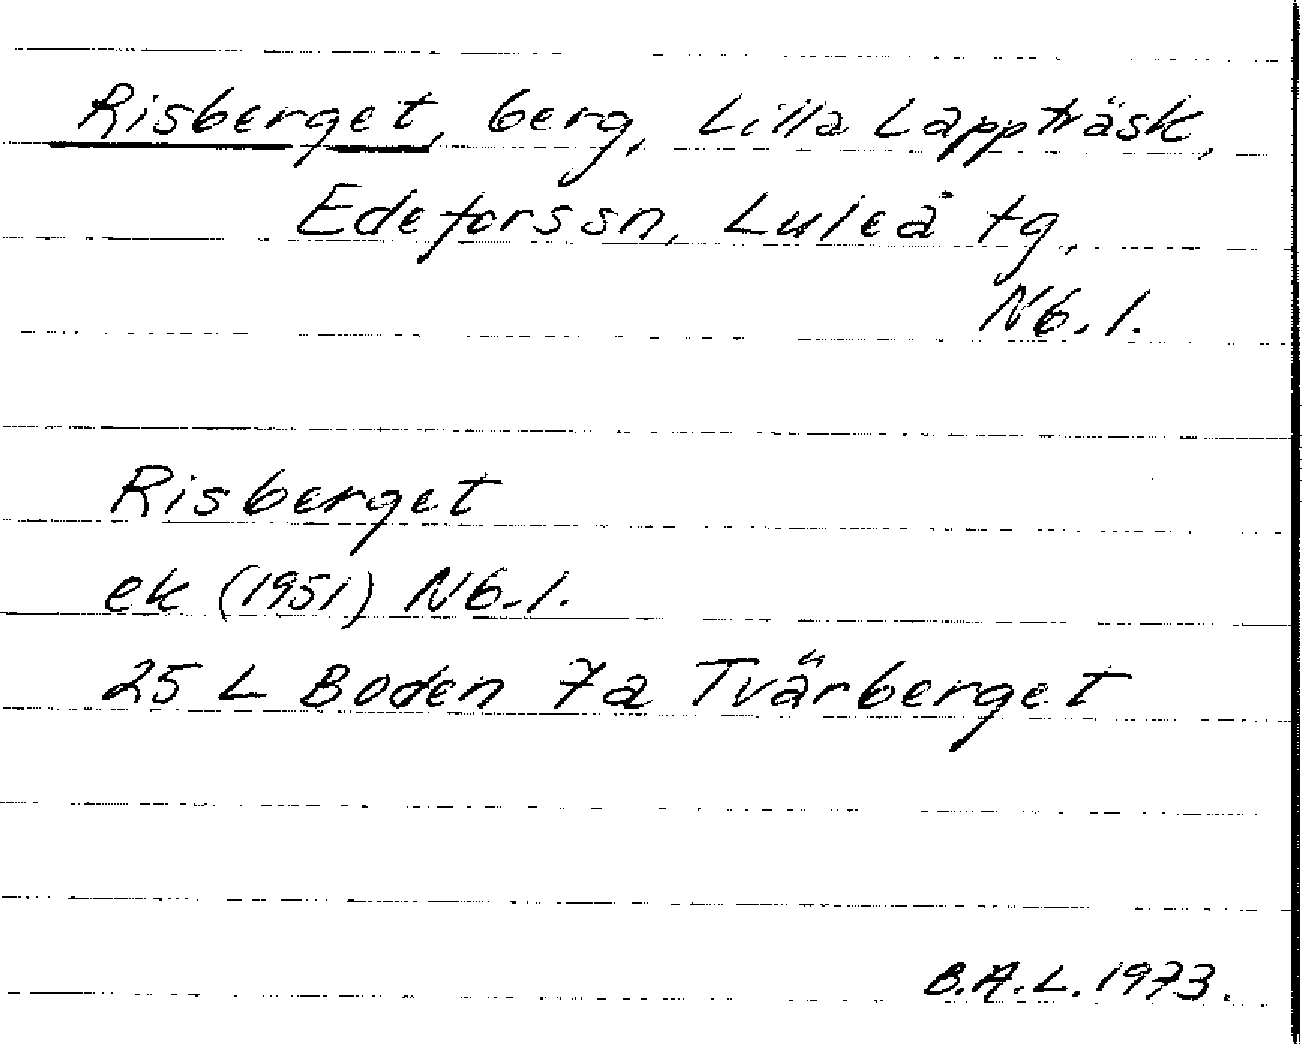 Risberget, berg, Lilla Lappträsk,
Edeforssn, Luleå tg,
Nb.l.
Risberget
ek (1951) Nb.l.
25 L Boden 7a Tvärberget
B.A.L. 1973.